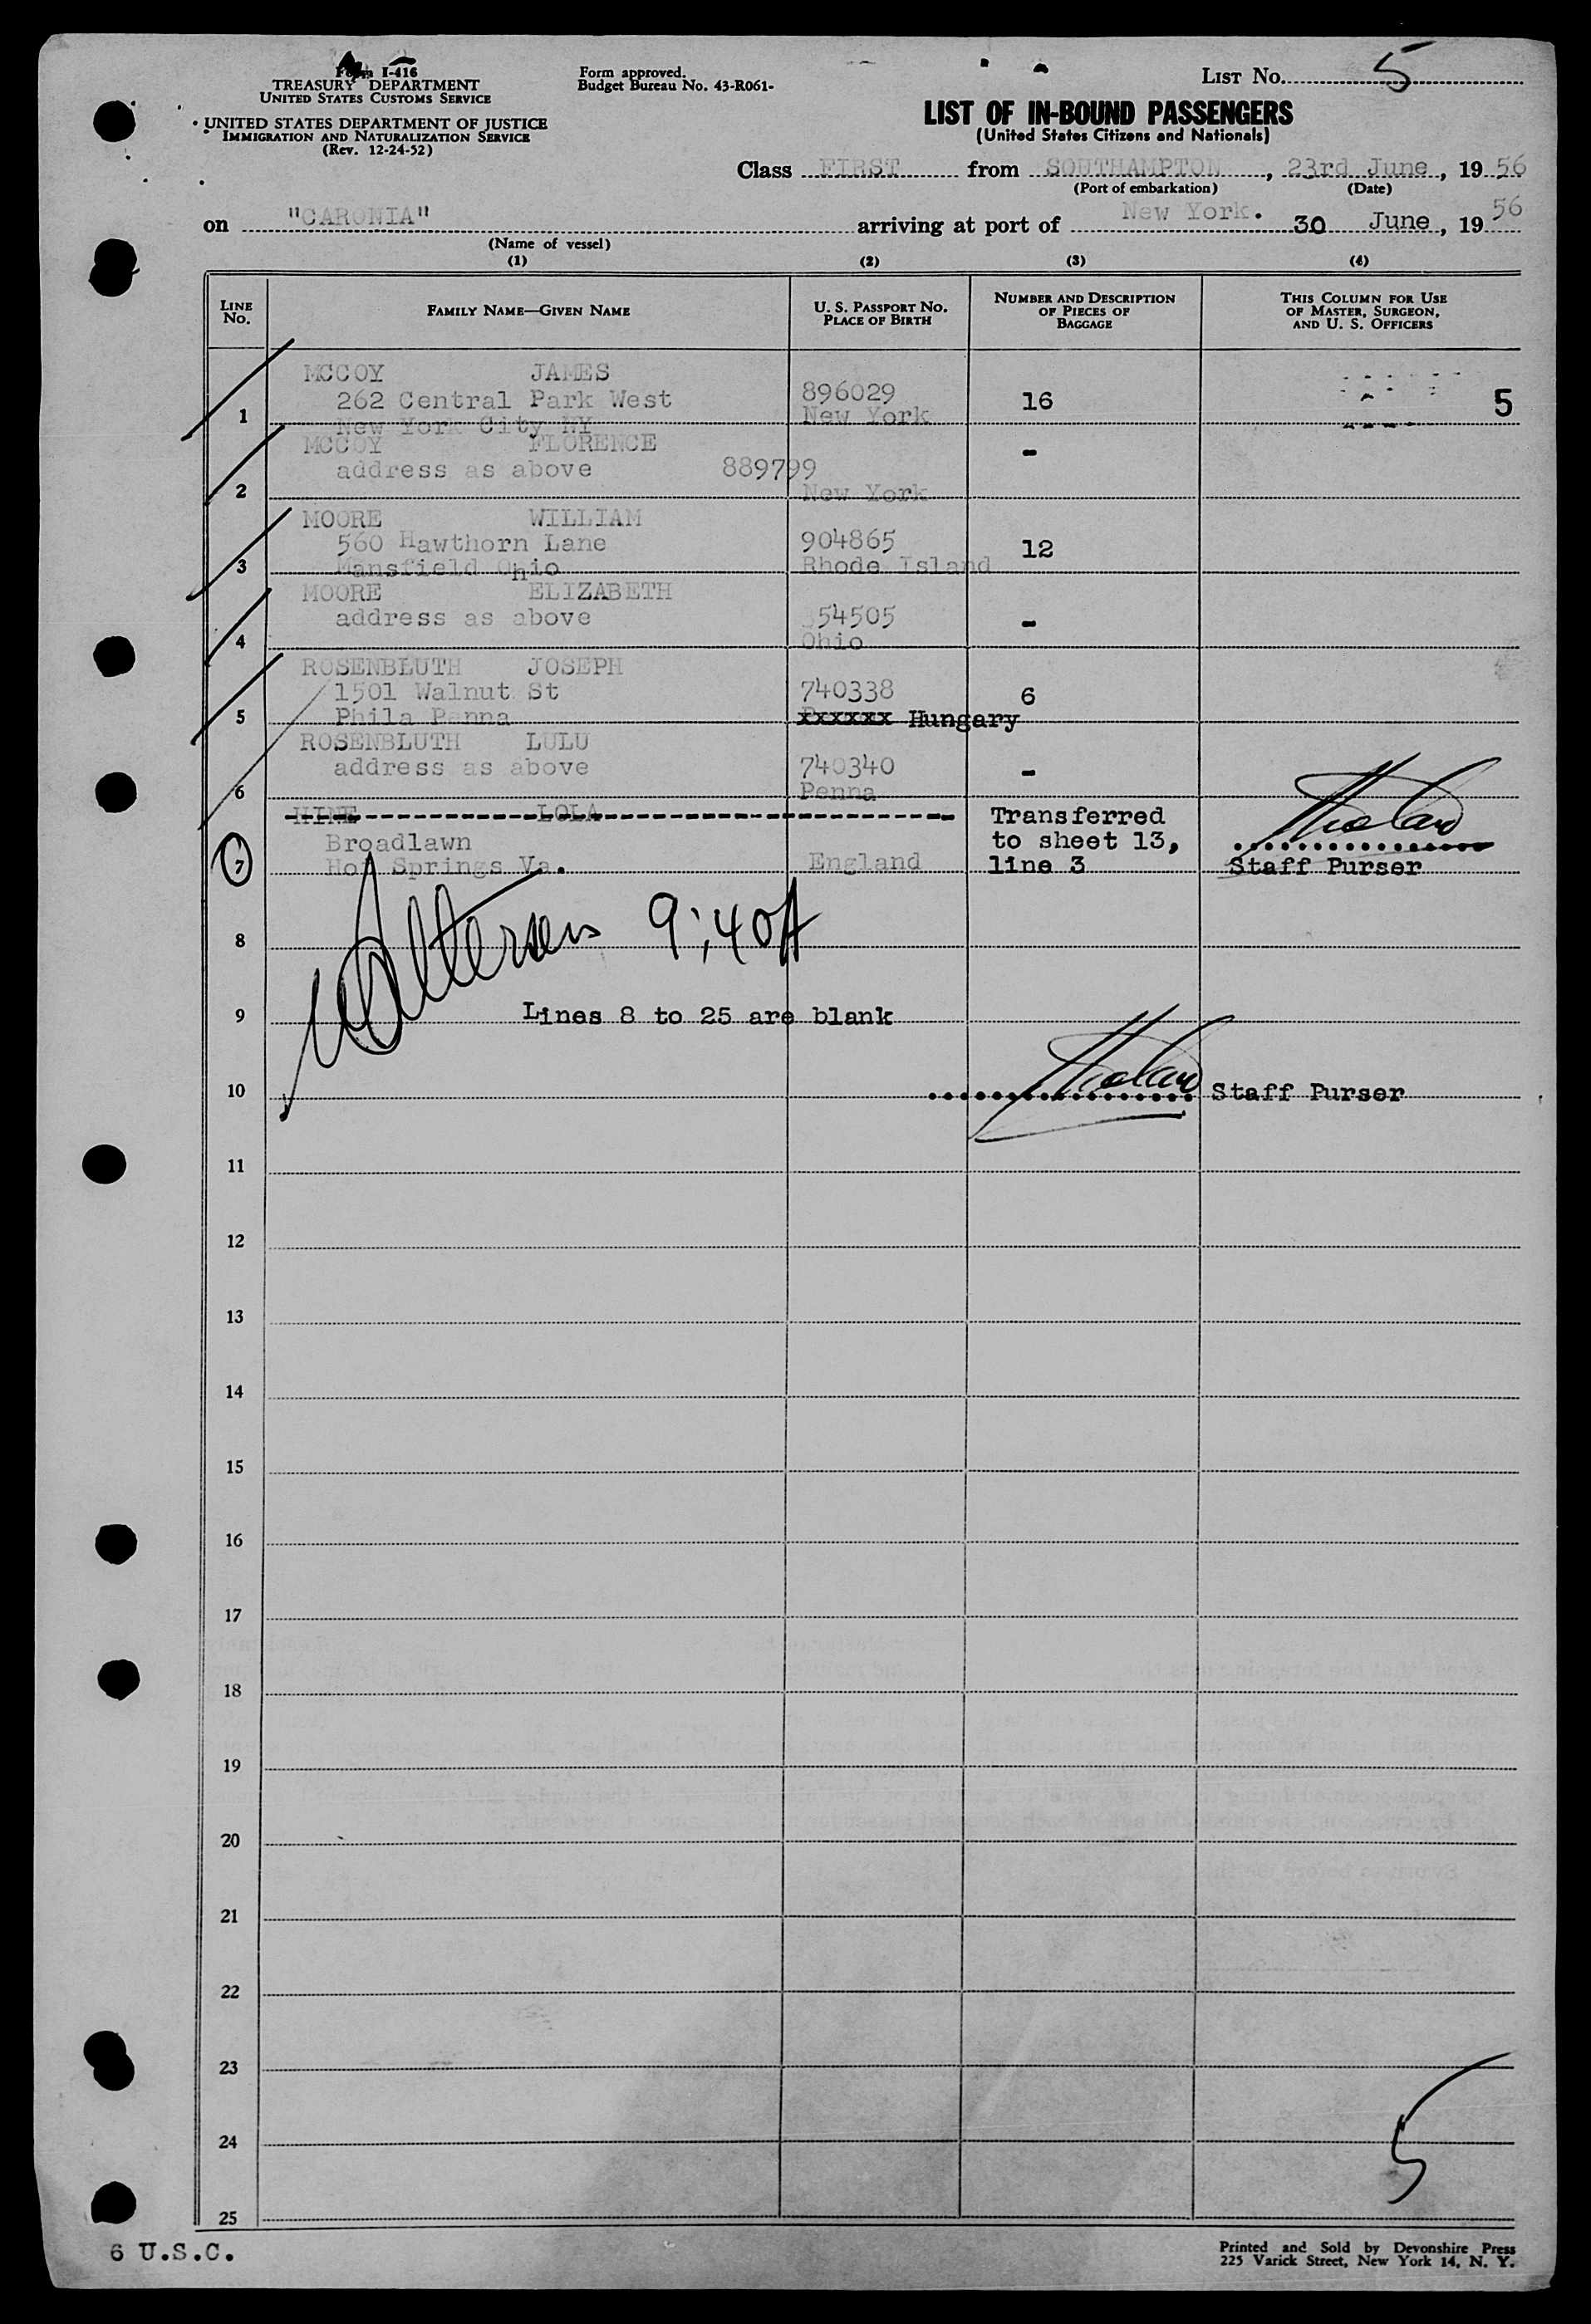 Form I-416
TREASURY DEPARTMENT
UNITED STATES CUSTOMS SERVICE
UNITED STATES DEPARTMENT OF JUSTICE
IMMIGRATION AND NATURALIZATION SERVICE
(Rev. 12-24-52)
Form approved.
Budget Bureau No. 43-R061-
LIST No. 5
LIST OF IN-BOUND PASSENGERS
(United States Citizens and Nationals)
Class FIRST from SOUTHAMPTON, 23rd June, 19 56
(Port of embarkation) (Date)
on "CARONIA" arriving at port of New York. 30 June, 19 56
(Name of vessel)
(1) (2) (3) (4)
LINE No. FAMILY NAME—GIVEN NAME U. S. PASSPORT NO. PLACE OF BIRTH NUMBER AND DESCRIPTION OF PIECES OF BAGGAGE THIS COLUMN FOR USE OF MASTER, SURGEON, AND U. S. OFFICERS
MCCOY JAMES
262 Central Park West 896029 16 5
1 New York City NY New York
MCCOY FLORENCE -
address as above 889799
2 New York
MOORE WILLIAM
560 Hawthorn Lane 904865 12
3 Mansfield Ohio Rhode Island
MOORE ELIZABETH
address as above 54505 -
4 Ohio
ROSENBLUTH JOSEPH
1501 Walnut St 740338 6
5 Phila Penna xxxxxx Hungary
ROSENBLUTH LULU
address as above 740340 -
6 Penna
HINE LOLA Transferred
Broadlawn to sheet 13,
7 Hot Springs Va. England line 3 Staff Purser
9:40A
8
9 Lines 8 to 25 are blank
10 Staff Purser
11
12
13
14
15
16
17
18
19
20
21
22
23
24
5
25
6 U.S.C.
Printed and Sold by Devonshire Press
225 Varick Street, New York 14, N. Y.